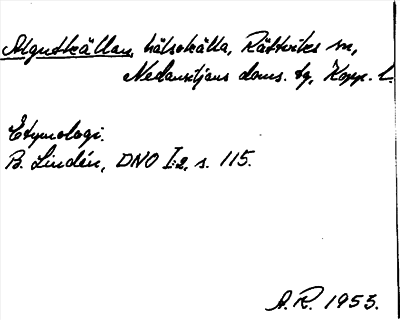 Algutkällan, hälsokälla, Rättviks sn,
Nedansiljans doms. tg, Kopp. l.
Etymologi.
B. Lindén, DNO I:2, s. 115.
A.R. 1953.